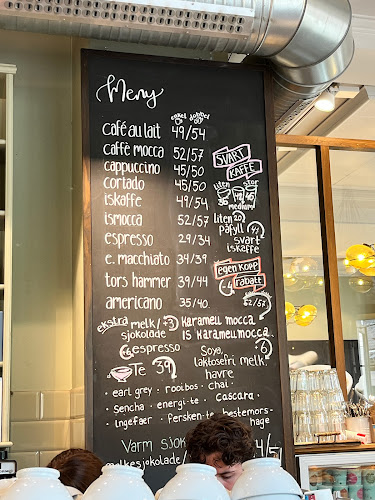 Meny
enkel dobbel
café au lait 49/54
caffè mocca 52/57
cappuccino 45/50
cortado 45/50
iskaffe 49/54
ismocca 52/57
espresso 29/34
e. macchiato 34/39
tors hammer 39/44
americano 35/40
SVART
KAFFE
liten stor
medium
liten
påfyll
svart
iskaffe
egen kopp
rabatt
52/57
ekstra melk/ +3
sjokolade
espresso
Karamell mocca
is Karamellmocca
Te 39
Soya,
laktosefri melk,
havre
· earl grey · rooibos · chai ·
· sencha · energi·te · cascara ·
· ingefær · fersken·te · bestemors-
hage
Varm sjok
melkesjokolade /